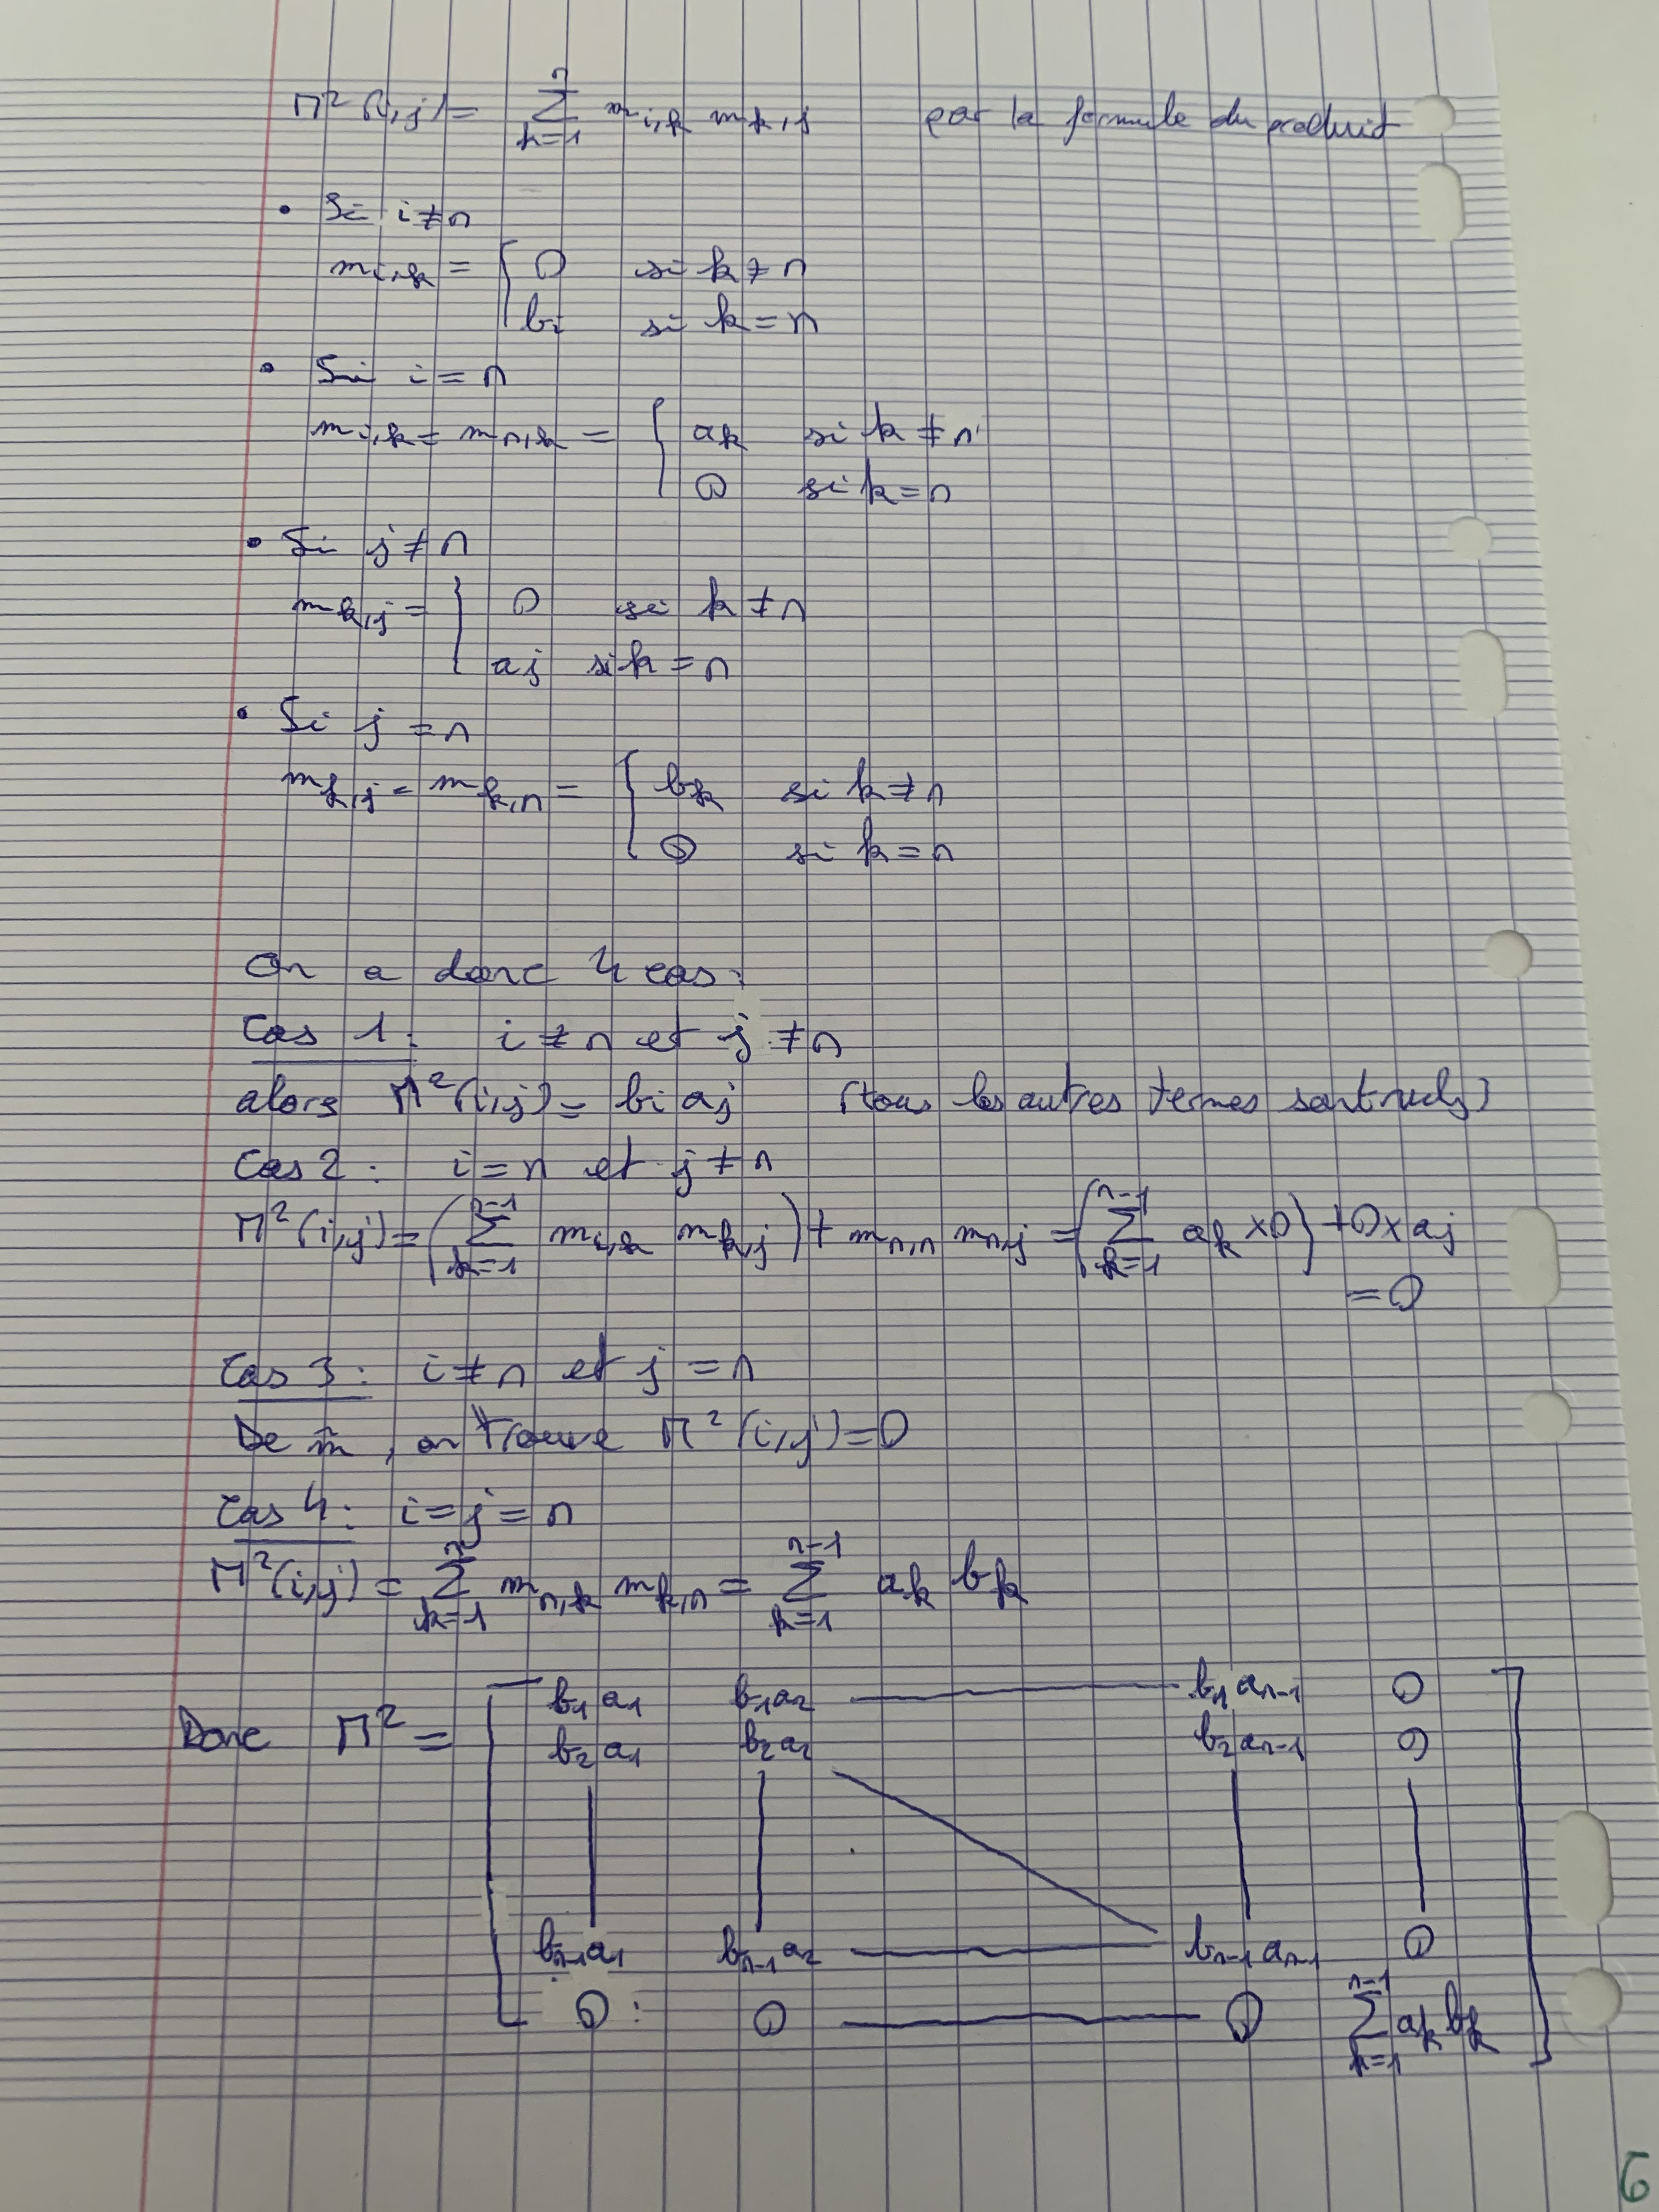 M²(i,j) = ∑_{k=1}^{n} m_{i,k} m_{k,j} par la formule du produit
• Si i ≠ n
m_{i,k} = { 0 si k ≠ n
b_i si k = n
• Si i = n
m_{i,k} = m_{n,k} = { a_k si k ≠ n
0 si k = n
• Si j ≠ n
m_{k,j} = { 0 si k ≠ n
a_j si k = n
• Si j = n
m_{k,j} = m_{k,n} = { b_k si k ≠ n
0 si k = n
On a donc 4 cas:
Cas 1: i ≠ n et j ≠ n
alors M²(i,j) = b_i a_j (tous les autres termes sont nuls)
Cas 2: i = n et j ≠ n
M²(i,j) = (∑_{k=1}^{n-1} m_{i,k} m_{k,j}) + m_{n,n} m_{n,j} = (∑_{k=1}^{n-1} a_k × 0) + 0 × a_j
= 0
Cas 3: i ≠ n et j = n
De m̂, on trouve M²(i,j) = 0
Cas 4: i = j = n
M²(i,j) = ∑_{k=1}^{n} m_{n,k} m_{k,n} = ∑_{k=1}^{n-1} a_k b_k
b_1 a_1 b_1 a_2 b_1 a_{n-1} 0
Donc M² = [ b_2 a_1 b_2 a_2 b_2 a_{n-1} 0 ]
b_{n-1} a_1 b_{n-1} a_2 b_{n-1} a_{n-1} 0
0 0 0 ∑_{k=1}^{n-1} a_k b_k
6